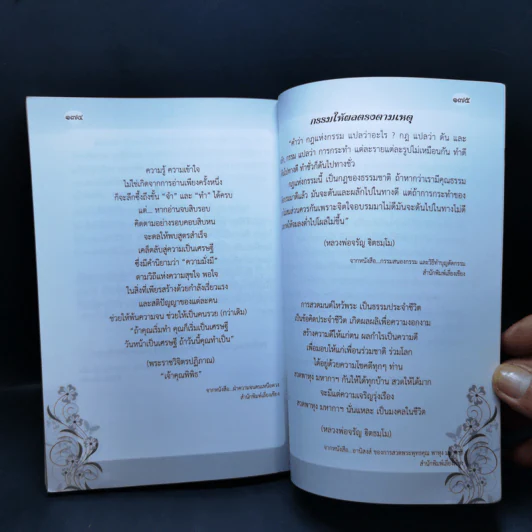 ๑๗๔
ความรู้ ความเข้าใจ
ไม่ใช่เกิดจากการอ่านเพียงครั้งหนึ่ง
ก็จะลึกซึ้งถึงขั้น "จำ" และ "ทำ" ได้ครบ
แต่... หากอ่านจบสิบรอบ
คิดตามอย่างรอบคอบสิบหน
จะดลให้พบสูตรสำเร็จ
เคล็ดลับสู่ความเป็นเศรษฐี
ซึ่งมีคำนิยามว่า "ความมั่งมี"
ตามวิถีแห่งความสุขใจ พอใจ
ในสิ่งที่เพียรสร้างด้วยกำลังเรี่ยวแรง
และสติปัญญาของแต่ละคน
ช่วยให้พ้นความจน ช่วยให้เป็นคนรวย (กว่าเดิม)
"ถ้าคุณเริ่มทำ คุณก็เริ่มเป็นเศรษฐี
วันหน้าเป็นเศรษฐี ถ้าวันนี้คุณทำเป็น"
(พระราชวิจิตรปฏิภาณ)
"เจ้าคุณพิพิธ"
จากหนังสือ...
สำนักพิมพ์เลี่ยงเชียง
๑๗๕
กรรมให้ผลตรงตามเหตุ
"คำว่า กฎแห่งกรรม แปลว่าอะไร ? กฎ แปลว่า ดัน และ
กรรม แปลว่า การกระทำ แต่ละรายแต่ละรูปไม่เหมือนกัน ทำดี
ทางดี ทำชั่วก็ดันไปทางชั่ว
กฎแห่งกรรมนี้ เป็นกฎของธรรมชาติ ถ้าหากว่าเรามีคุณธรรม
มาดีแล้ว มันจะดันและผลักไปในทางดี แต่ถ้าการกระทำของ
ส่วนควรกันเพราะจิตใจอบรมมาไม่ดีมันจะดันไปในทางไม่ดี
ลงต่ำไปไม่ผุดไม่ขึ้น"
(หลวงพ่อจรัญ ฐิตธมฺโม)
จากหนังสือ...กรรมสนองกรรม และวิธีทำบุญตัดกรรม
สำนักพิมพ์เลี่ยงเชียง
การสวดมนต์ไหว้พระ เป็นธรรมประจำชีวิต
เป็นข้อคิดประจำชีวิต เกิดผลผลิเพื่อความงอกงาม
สร้างความดีให้แก่ตน ผลกำไรเป็นความดี
เพื่อมอบให้แก่เพื่อนร่วมชาติ ร่วมโลก
ได้อยู่ด้วยความโชคดีทุกๆ ท่าน
สวดพาหุง มหากาฯ กันให้ได้ทุกบ้าน สวดให้ได้มาก
จะมีแต่ความเจริญรุ่งเรือง
สวดพาหุง มหากาฯ นั่นแหละ เป็นมงคลในชีวิต
(หลวงพ่อจรัญ ฐิตธมฺโม)
จากหนังสือ...อานิสงส์ ของการสวดพระพุทธคุณ พาหุง
สำนักพิมพ์เลี่ยงเชียง